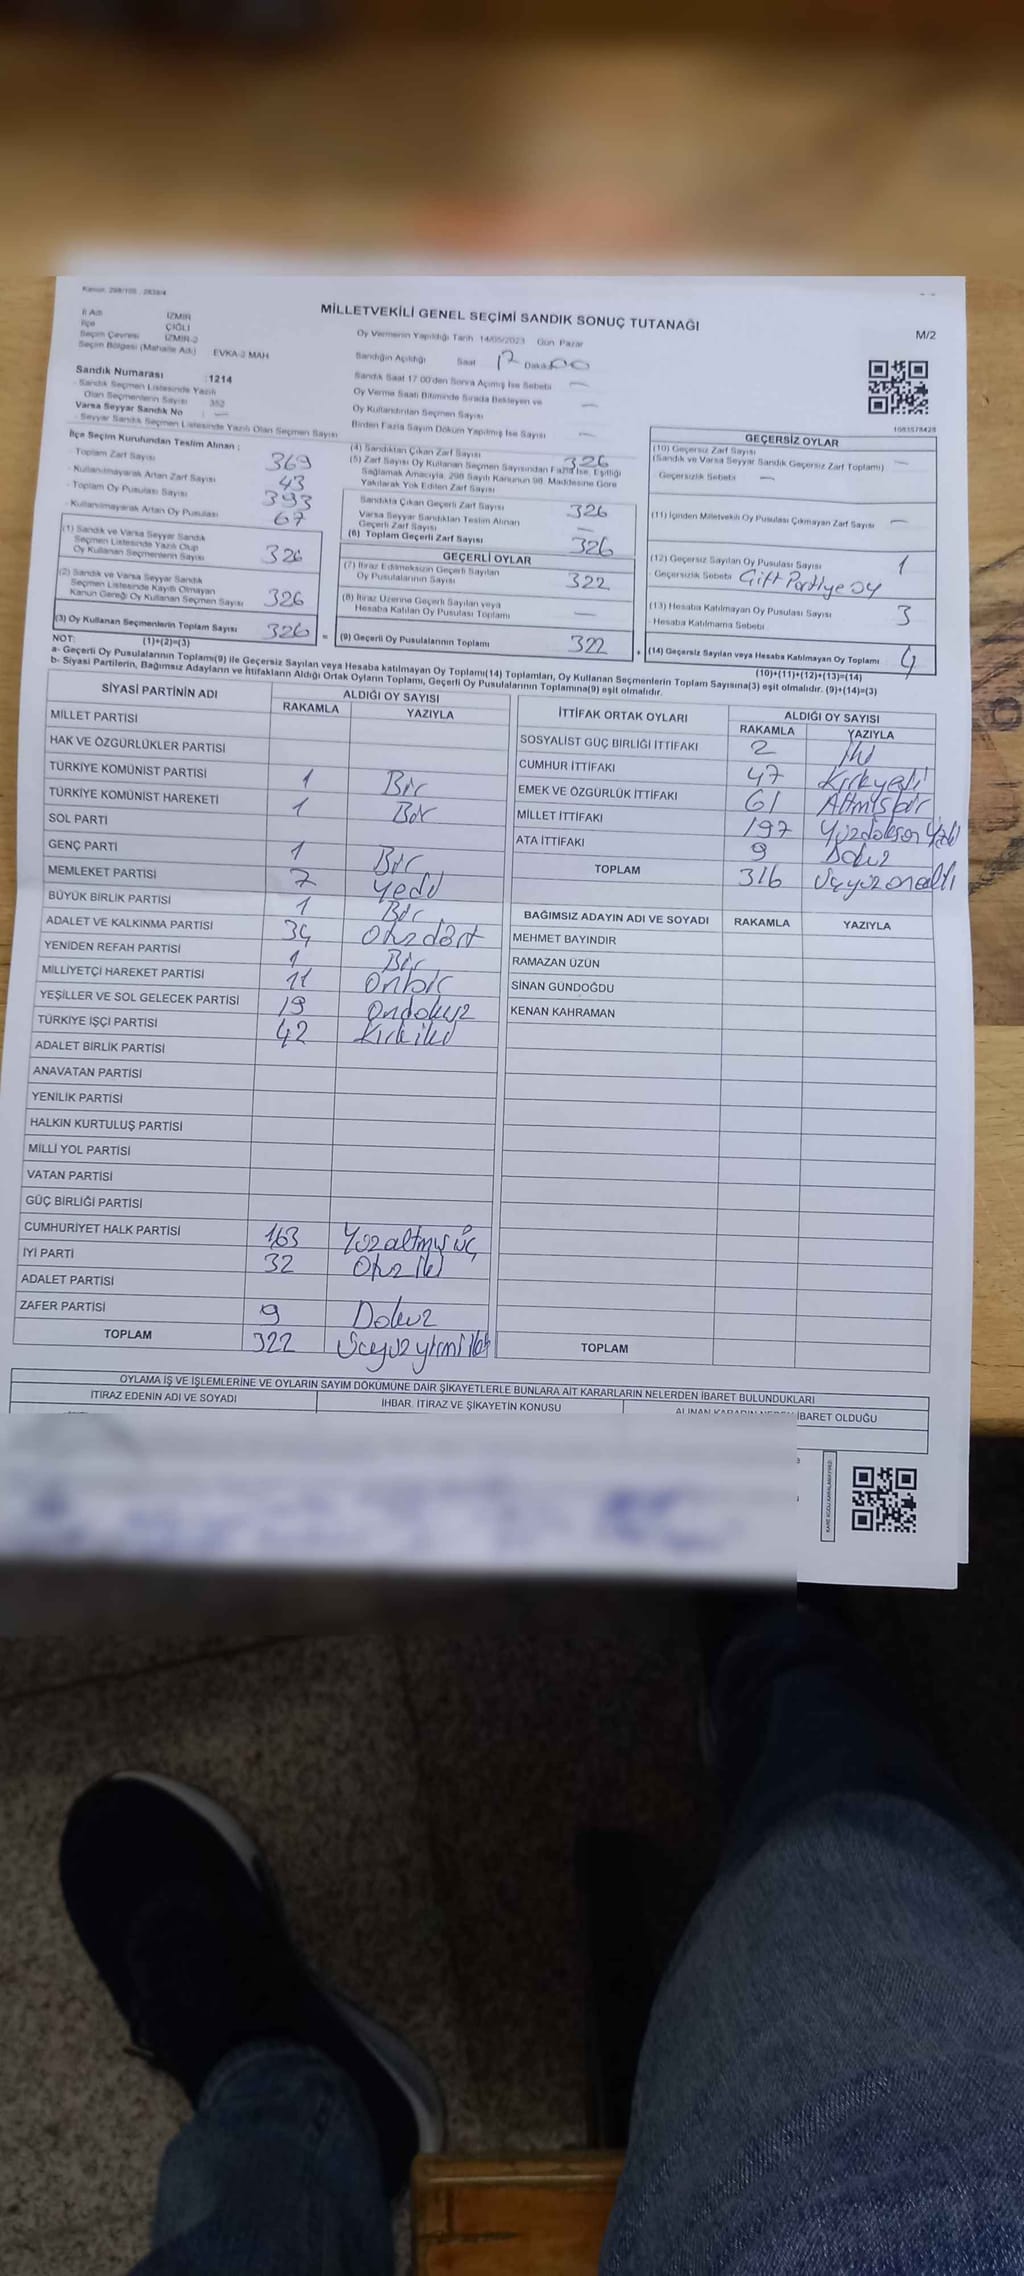 MİLLETVEKİLİ GENEL SEÇİMİ SANDIK SONUÇ TUTANAĞI
M/2
İl Adı İZMİR
İlçe ÇİĞLİ
Seçim Çevresi İZMİR-2
Seçim Bölgesi (Mahalle Adı) EVKA-2 MAH
Sandık Numarası :1214
Sandık Seçmen Listesinde Yazılı
Olan Seçmenlerin Sayısı 352
Varsa Seyyar Sandık No : —
Seyyar Sandık Seçmen Listesinde Yazılı Olan Seçmen Sayısı
Oy Vermenin Yapıldığı Tarih 14/05/2023 Gün Pazar
Sandığın Açıldığı Saat 17 Dakika 00
Sandık Saat 17 00'den Sonra Açılmış İse Sebebi —
Oy Verme Saati Bitiminde Sırada Bekleyen ve
Oy Kullandırılan Seçmen Sayısı —
Birden Fazla Sayım Döküm Yapılmış İse Sayısı —
1083578428
İlçe Seçim Kurulundan Teslim Alınan :
- Toplam Zarf Sayısı 369
- Kullanılmayarak Artan Zarf Sayısı 43
- Toplam Oy Pusulası Sayısı 393
- Kullanılmayarak Artan Oy Pusulası 67
(1) Sandık ve Varsa Seyyar Sandık
Seçmen Listesinde Yazılı Olup
Oy Kullanan Seçmenlerin Sayısı 326
(2) Sandık ve Varsa Seyyar Sandık
Seçmen Listesinde Kayıtlı Olmayan
Kanun Gereği Oy Kullanan Seçmen Sayısı 326
(3) Oy Kullanan Seçmenlerin Toplam Sayısı 326
(1)+(2)=(3)
(4) Sandıktan Çıkan Zarf Sayısı 326
(5) Zarf Sayısı Oy Kullanan Seçmen Sayısından Fazla İse, Eşitliği
Sağlamak Amacıyla, 298 Sayılı Kanunun 98. Maddesine Göre
Yakılarak Yok Edilen Zarf Sayısı
Sandıkta Çıkan Geçerli Zarf Sayısı 326
Varsa Seyyar Sandıktan Teslim Alınan
Geçerli Zarf Sayısı —
(6) Toplam Geçerli Zarf Sayısı 326
GEÇERLİ OYLAR
(7) İtiraz Edilmeksizin Geçerli Sayılan
Oy Pusulalarının Sayısı 322
(8) İtiraz Üzerine Geçerli Sayılan veya
Hesaba Katılan Oy Pusulası Toplamı —
= (9) Geçerli Oy Pusulalarının Toplamı 322
GEÇERSİZ OYLAR
(10) Geçersiz Zarf Sayısı —
(Sandık ve Varsa Seyyar Sandık Geçersiz Zarf Toplamı)
Geçersizlik Sebebi —
(11) İçinden Milletvekili Oy Pusulası Çıkmayan Zarf Sayısı —
(12) Geçersiz Sayılan Oy Pusulası Sayısı 1
Geçersizlik Sebebi Çift Partiye oy
(13) Hesaba Katılmayan Oy Pusulası Sayısı 3
- Hesaba Katılmama Sebebi
+ (14) Geçersiz Sayılan veya Hesaba Katılmayan Oy Toplamı 4
(10)+(11)+(12)+(13)=(14)
NOT:
a- Geçerli Oy Pusulalarının Toplamı(9) ile Geçersiz Sayılan veya Hesaba katılmayan Oy Toplamı(14) Toplamları, Oy Kullanan Seçmenlerin Toplam Sayısına(3) eşit olmalıdır. (9)+(14)=(3)
b- Siyasi Partilerin, Bağımsız Adayların ve İttifakların Aldığı Ortak Oyların Toplamı, Geçerli Oy Pusulalarının Toplamına(9) eşit olmalıdır.
SİYASİ PARTİNİN ADI ALDIĞI OY SAYISI
RAKAMLA YAZIYLA
MİLLET PARTİSİ
HAK VE ÖZGÜRLÜKLER PARTİSİ
TÜRKİYE KOMÜNİST PARTİSİ 1 Bir
TÜRKİYE KOMÜNİST HAREKETİ 1 Bir
SOL PARTİ
GENÇ PARTİ 1 Bir
MEMLEKET PARTİSİ 7 Yedi
BÜYÜK BİRLİK PARTİSİ 1 Bir
ADALET VE KALKINMA PARTİSİ 34 Otuzdört
YENİDEN REFAH PARTİSİ 1 Bir
MİLLİYETÇİ HAREKET PARTİSİ 11 Onbir
YEŞİLLER VE SOL GELECEK PARTİSİ 19 Ondokuz
TÜRKİYE İŞÇİ PARTİSİ 42 Kırkiki
ADALET BİRLİK PARTİSİ
ANAVATAN PARTİSİ
YENİLİK PARTİSİ
HALKIN KURTULUŞ PARTİSİ
MİLLİ YOL PARTİSİ
VATAN PARTİSİ
GÜÇ BİRLİĞİ PARTİSİ
CUMHURİYET HALK PARTİSİ 163 Yüzaltmış üç
İYİ PARTİ 32 Otuz iki
ADALET PARTİSİ
ZAFER PARTİSİ 9 Dokuz
TOPLAM 322 Üçyüz yirmi iki
İTTİFAK ORTAK OYLARI ALDIĞI OY SAYISI
RAKAMLA YAZIYLA
SOSYALİST GÜÇ BİRLİĞİ İTTİFAKI 2 İki
CUMHUR İTTİFAKI 47 Kırkyedi
EMEK VE ÖZGÜRLÜK İTTİFAKI 61 Altmışbir
MİLLET İTTİFAKI 197 Yüzdoksan Yedi
ATA İTTİFAKI 9 Dokuz
TOPLAM 316 Üçyüzonaltı
BAĞIMSIZ ADAYIN ADI VE SOYADI RAKAMLA YAZIYLA
MEHMET BAYINDIR
RAMAZAN ÜZÜN
SİNAN GÜNDOĞDU
KENAN KAHRAMAN
TOPLAM
OYLAMA İŞ VE İŞLEMLERİNE VE OYLARIN SAYIM DÖKÜMÜNE DAİR ŞİKAYETLERLE BUNLARA AİT KARARLARIN NELERDEN İBARET BULUNDUKLARI
İTİRAZ EDENİN ADI VE SOYADI İHBAR, İTİRAZ VE ŞİKAYETİN KONUSU ALINAN KARARIN NEDEN İBARET OLDUĞU